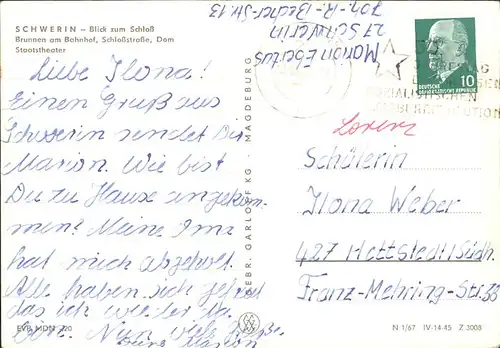 SCHWERIN — Blick zum Schloß
Brunnen am Bahnhof, Schloßstraße, Dom
Staatstheater
Liebe Ilona!
Einen Gruß aus
Schwerin sendet Dir
Marion. Wie bist
Du zu Hause angekom-
men? Meine
hat mich abgeholt.
Alle haben sich gefreut
das ich wieder da
bin. Nun viele Grüße
Eure Marion
EVP MDN
GEBR. GARLOFF KG · MAGDEBURG
Marion Ebertus
27 Schwerin
Joh.-R.-Becher-Str. 13
SOZIALISTISCHEN
DEUTSCHE
DEMOKRATISCHE REPUBLIK
10
Lorenz
Schülerin
Ilona Weber
427 Hettstedt/Südh.
Franz-Mehring-Str. 33
N 1/67 IV-14-45 Z 3008